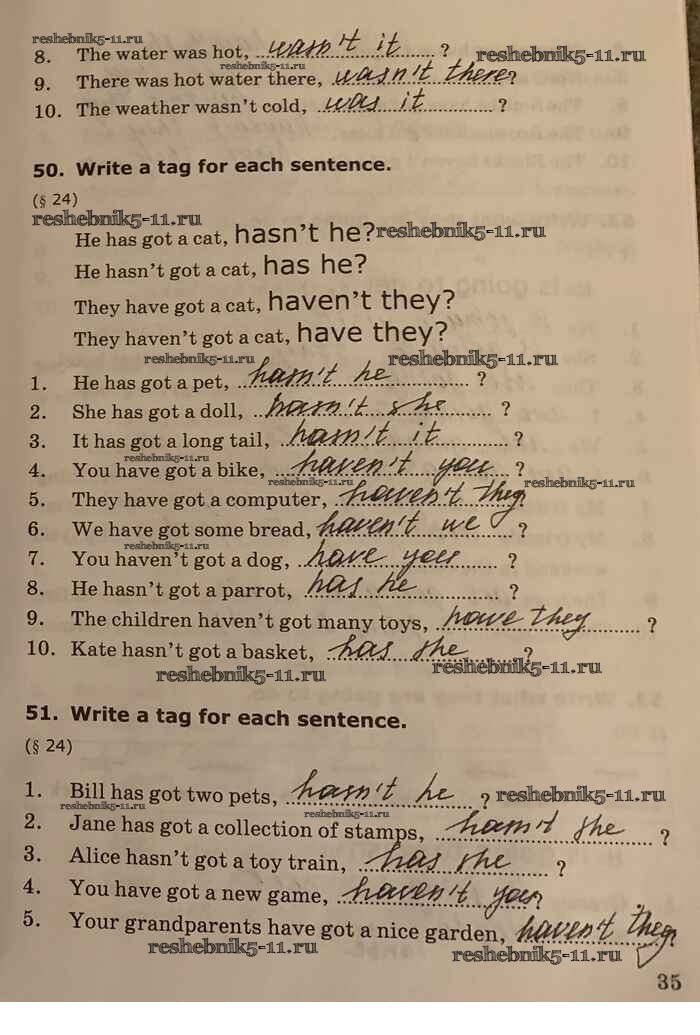 reshebnik5-11.ru
8. The water was hot, wasn't it ? reshebnik5-11.ru
reshebnik5-11.ru
9. There was hot water there, wasn't there?
10. The weather wasn't cold, was it ?
50. Write a tag for each sentence.
(§ 24)
reshebnik5-11.ru
He has got a cat, hasn't he? reshebnik5-11.ru
He hasn't got a cat, has he?
They have got a cat, haven't they?
They haven't got a cat, have they?
reshebnik5-11.ru reshebnik5-11.ru
1. He has got a pet, hasn't he ?
2. She has got a doll, hasn't she ?
3. It has got a long tail, hasn't it ?
reshebnik5-11.ru
4. You have got a bike, haven't you ?
reshebnik5-11.ru reshebnik5-11.ru
5. They have got a computer, haven't they?
6. We have got some bread, haven't we ?
reshebnik5-11.ru
7. You haven't got a dog, have you ?
8. He hasn't got a parrot, has he ?
9. The children haven't got many toys, have they ?
10. Kate hasn't got a basket, has she ?
reshebnik5-11.ru reshebnik5-11.ru
51. Write a tag for each sentence.
(§ 24)
1. Bill has got two pets, hasn't he ? reshebnik5-11.ru
reshebnik5-11.ru reshebnik5-11.ru
2. Jane has got a collection of stamps, hasn't she ?
3. Alice hasn't got a toy train, has she ?
4. You have got a new game, haven't you?
5. Your grandparents have got a nice garden, haven't they?
reshebnik5-11.ru reshebnik5-11.ru
35